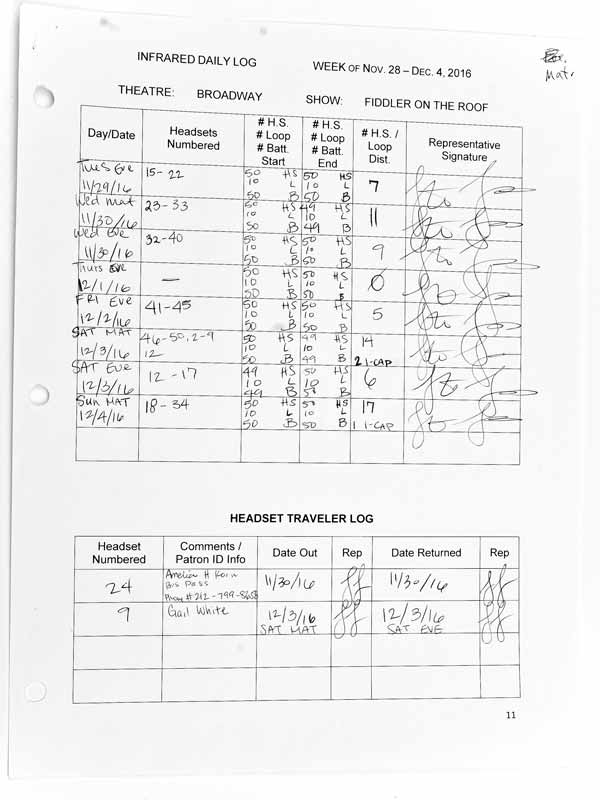 INFRARED DAILY LOG WEEK OF NOV. 28 – DEC. 4, 2016
Mat.
THEATRE: BROADWAY SHOW: FIDDLER ON THE ROOF
Day/Date Headsets Numbered # H.S. # Loop # Batt. Start # H.S. # Loop # Batt. End # H.S. / Loop Dist. Representative Signature
Tues Eve 11/29/16 15-22 50 HS 10 L 50 B 50 HS 10 L 50 B 7
Wed Mat 11/30/16 23-33 50 HS 10 L 50 B 49 HS 10 L 49 B 11
Wed Eve 11/30/16 32-40 50 HS 10 L 50 B 50 HS 10 L 50 B 9
Thurs Eve 12/1/16 — 50 HS 10 L 50 B 50 HS 10 L 50 B 0
FRI Eve 12/2/16 41-45 50 HS 10 L 50 B 50 HS 10 L 50 B 5
SAT MAT 12/3/16 46-50, 2-9 12 50 HS 10 L 50 B 49 HS 10 L 49 B 14 2 1-CAP
SAT Eve 12/3/16 12-17 49 HS 10 L 49 B 50 HS 10 L 50 B 6
Sun MAT 12/4/16 18-34 50 HS 10 L 50 B 50 HS 10 L 50 B 17 1 1-CAP
HEADSET TRAVELER LOG
Headset Numbered Comments / Patron ID Info Date Out Rep Date Returned Rep
24 H Bus Pass Phone # 212-799- 11/30/16 11/30/16
9 Gail White 12/3/16 SAT MAT 12/3/16 SAT EVE
11